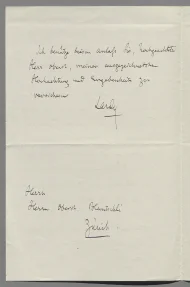 Ich benütze diesen Anlass Sie, Hochgeachteter
Herr Oberst, meiner ausgezeichneten
Hochachtung und Ergebenheit zu
versichern
Herrn
Herrn Oberst
Zürich